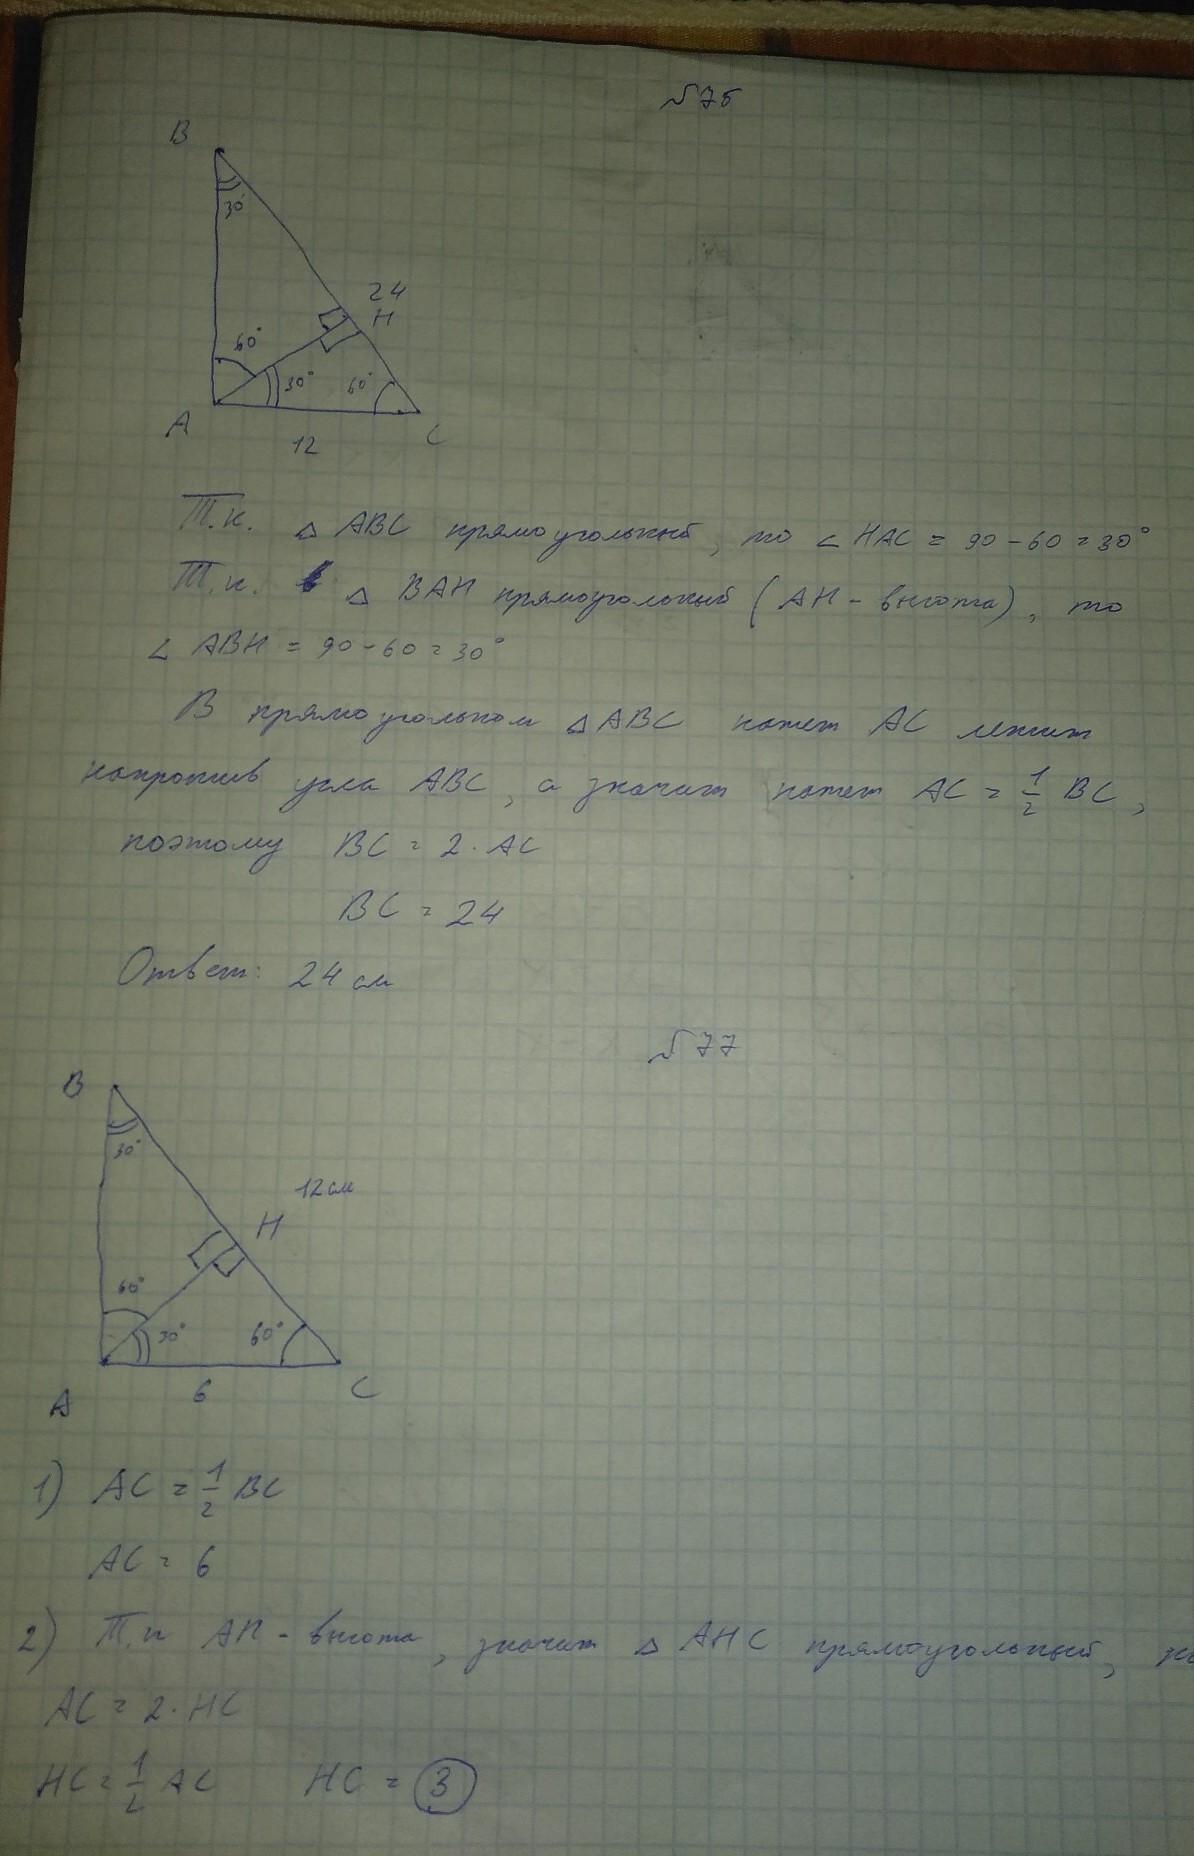 № 75
B
30°
24
H
60°
30°
60°
A
12
C
Т.к. △ ABC прямоугольный, то ∠ HAC = 90 - 60 = 30°
Т.к. △ BAH прямоугольный (AH - высота), то
∠ ABH = 90 - 60 = 30°
В прямоугольном △ ABC катет AC лежит
напротив угла ABC, а значит катет AC = 1/2 BC,
поэтому BC = 2 · AC
BC = 24
Ответ: 24 см
№ 77
B
30°
12 см
H
60°
30°
60°
A
6
C
1) AC = 1/2 BC
AC = 6
2) Т.к AH - высота, значит △ AHC прямоугольный,
AC = 2 · HC
HC = 1/2 AC HC = 3